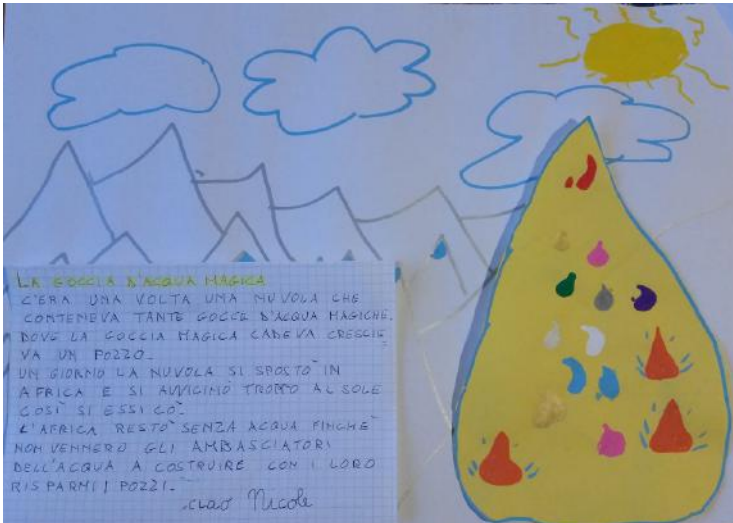 LA GOCCIA D'ACQUA MAGICA
C'ERA UNA VOLTA UNA NUVOLA CHE
CONTENEVA TANTE GOCCE D'ACQUA MAGICHE.
DOVE LA GOCCIA MAGICA CADEVA CRESCIE
VA UN POZZO.
UN GIORNO LA NUVOLA SI SPOSTÒ IN
AFRICA E SI AVVICINÒ TROPPO AL SOLE
COSÌ SI ESSICÒ.
L'AFRICA RESTÒ SENZA ACQUA FINCHÈ
NON VENNERO GLI AMBASCIATORI
DELL'ACQUA A COSTRUIRE CON I LORO
RISPARMI I POZZI.
CIAO Nicole